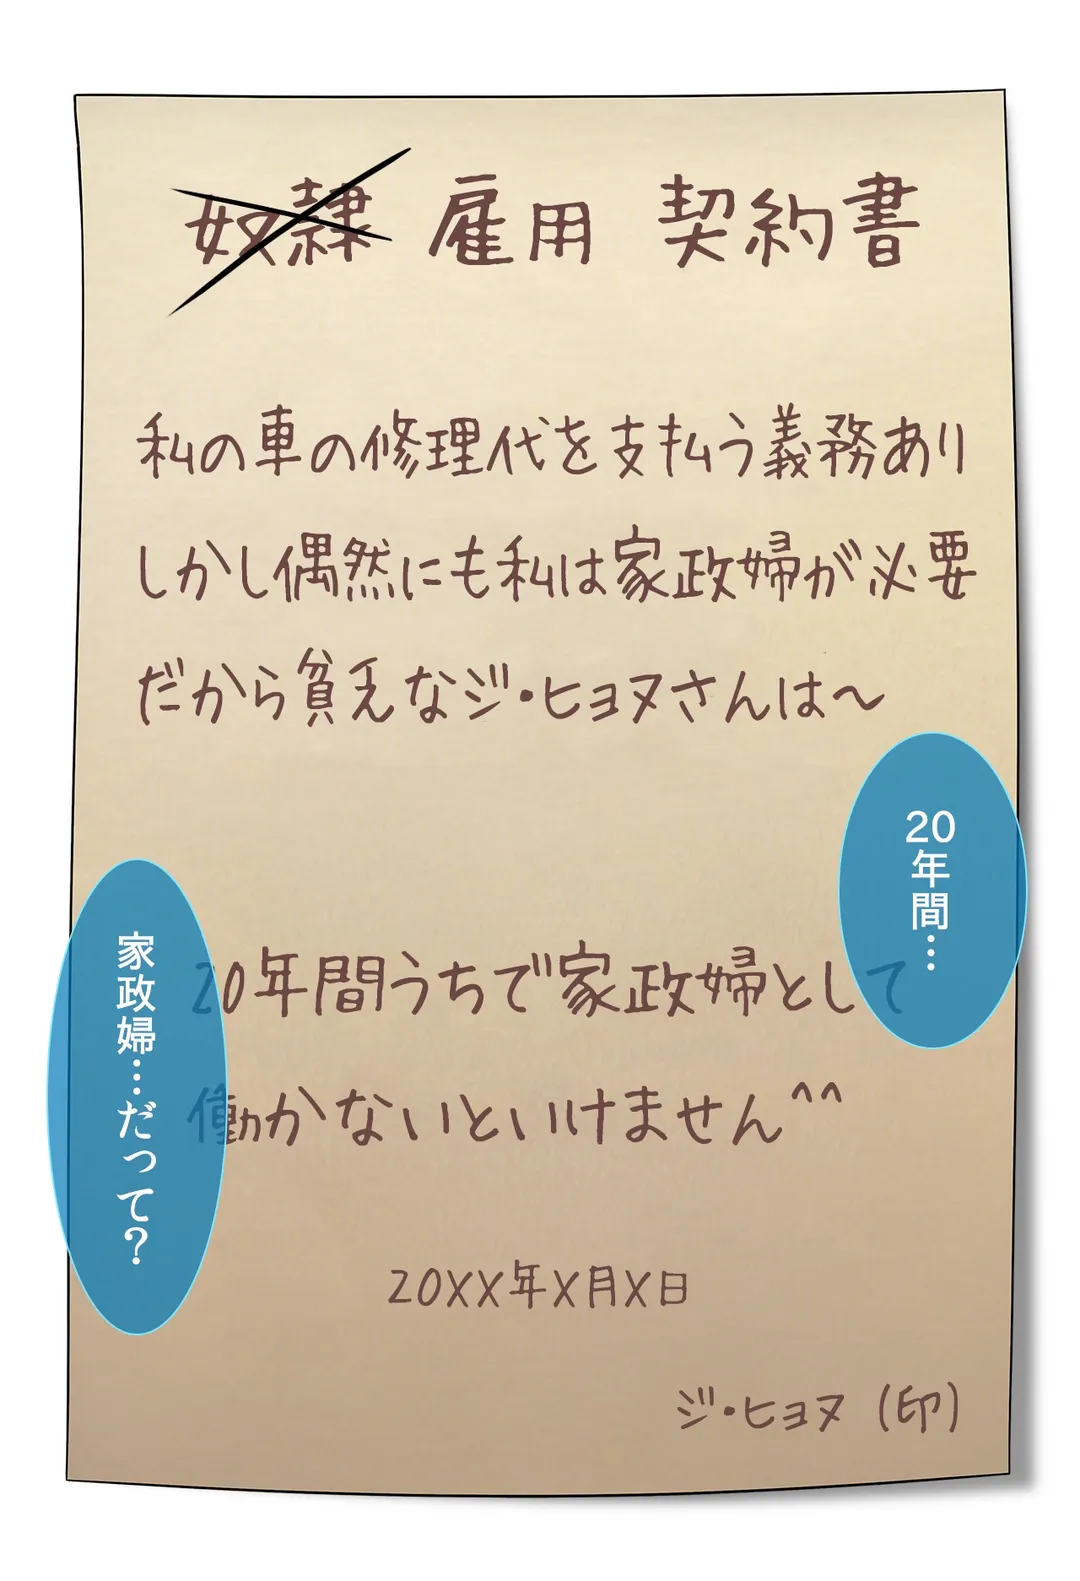 奴隷 雇用 契約書
私の車の修理代を支払う義務あり
しかし偶然にも私は家政婦が必要
だから貧乏なジ・ヒョヌさんは〜
20年間…
20年間うちで家政婦として
働かないといけません^^
家政婦…だって?
20XX年X月X日
ジ・ヒョヌ (印)